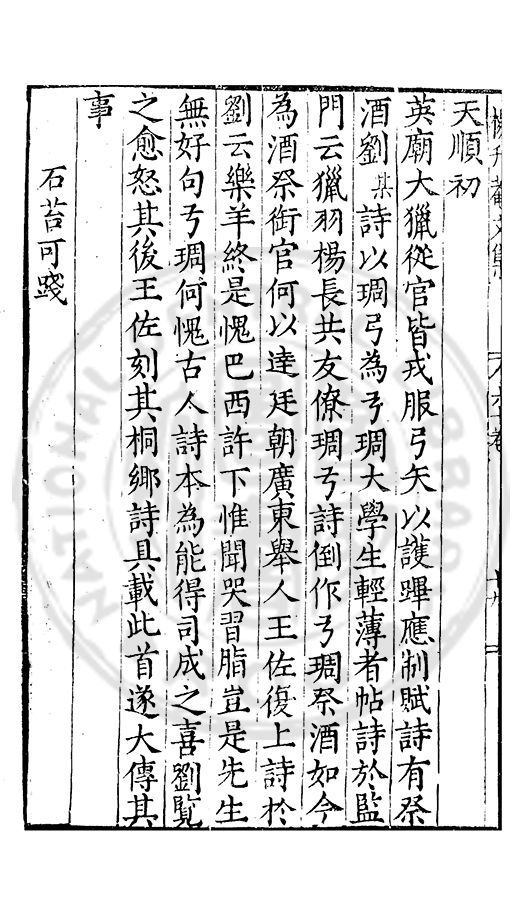 天順初
英廟大獵從官皆戎服弓矢以護蹕應制賦詩有祭
酒劉某詩以琱弓為弓琱大學生輕薄者帖詩於監
門云獵羽楊長共友僚琱弓詩倒作弓琱祭酒如今
為酒祭衘官何以達廷朝廣東舉人王佐復上詩於
劉云樂羊終是愧巴西許下惟聞哭習脂豈是先生
無好句弓琱何愧古人詩本為能得司成之喜劉覧
之愈怒其後王佐刻其桐鄉詩具載此首遂大傳其
事
石苔可踐